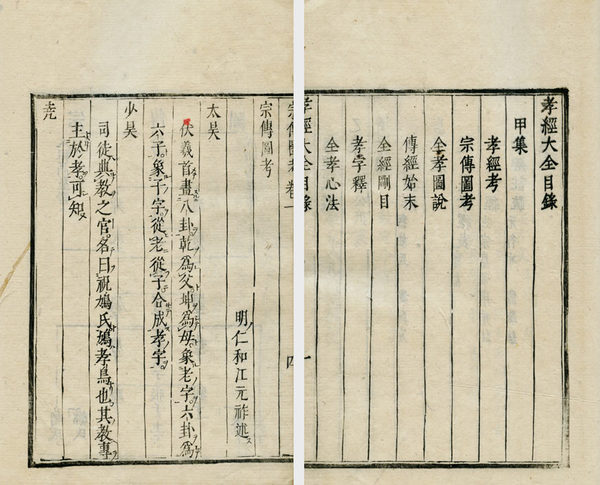 孝經大全目錄
甲集
孝經考
宗傳圖考
全孝圖說
傳經始末
全經綱目
孝字釋
全孝心法
孝經大全目錄
一
宗傳圖考卷一
四
明仁和江元祚述
宗傳圖考
太昊
伏羲首畫八卦乾爲父坤爲母象老字六卦爲
六子象子字從老從子合成孝字
少昊
司徒典教之官名曰祝鳩氏鳩孝鳥也其教專
主於孝可知
堯